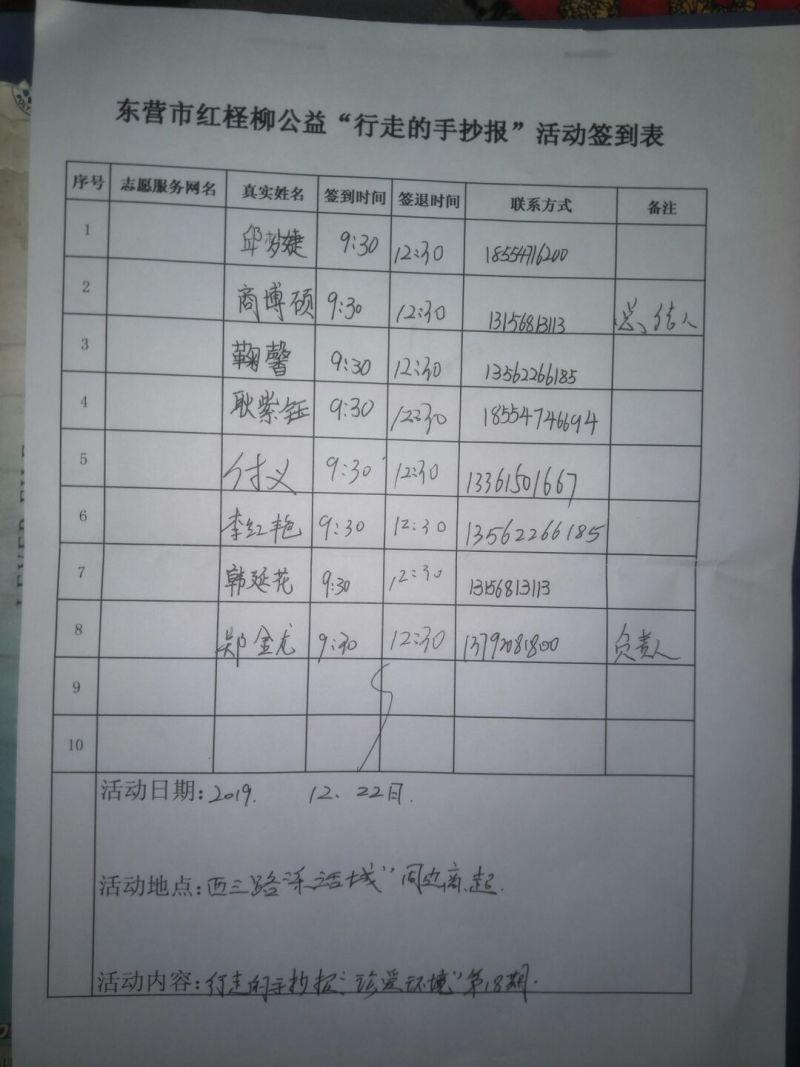 东营市红柽柳公益“行走的手抄报”活动签到表
序号 志愿服务网名 真实姓名 签到时间 签退时间 联系方式 备注
1 邱梦婕 9:30 12:30 18554716200
2 商博硕 9:30 12:30 13156813113 总结人
3 鞠馨 9:30 12:30 13562266185
4 耿紫钰 9:30 12:30 18554746694
5 付义 9:30 12:30 13361501667
6 李红艳 9:30 12:30 13562266185
7 韩延花 9:30 12:30 13156813113
8 郑金龙 9:30 12:30 13792081800 负责人
9
10
活动日期:2019. 12. 22日.
活动地点:西三路 周边
活动内容:行走的手抄报“珍爱环境”第18期.